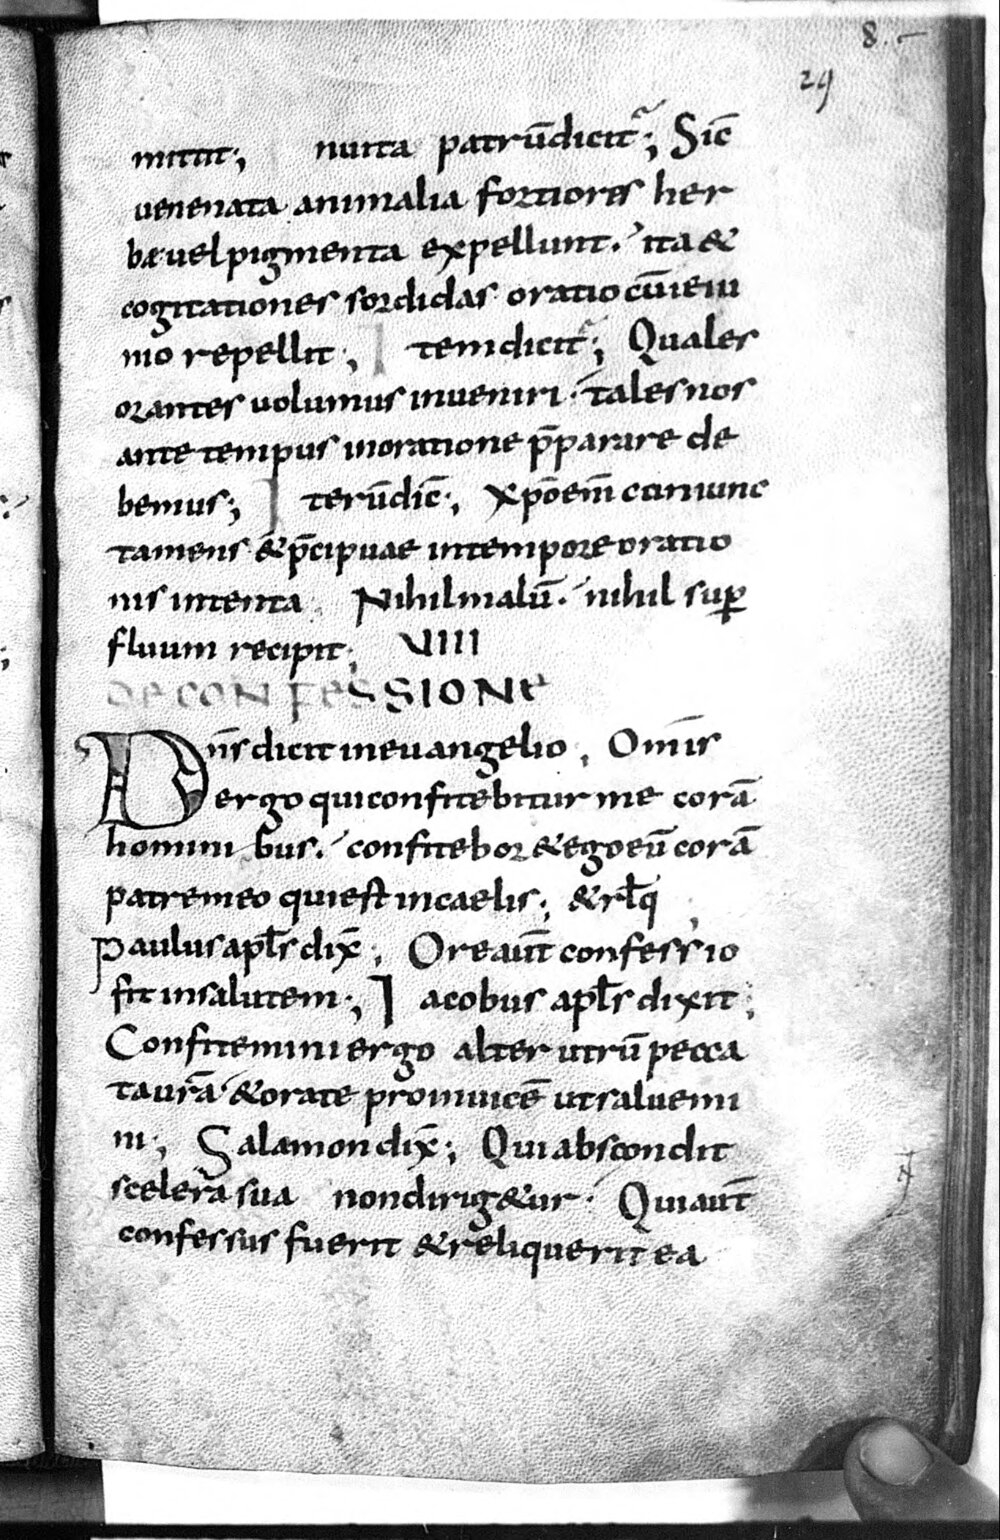 8. —
29
mittit; nuita patrū dicitr̃; Sic̄
uenenata animalia fortiores her
bae uel pigmenta expellunt. ita &
cogitationes sordidas oratio cū ieiu
nio repellit; Item dicitr̃; Quales
orantes uolumus inueniri. tales nos
ante tempus in oratione p̄parare de
bemus; Iterū dic̄; xp̄o em̄ coniunc
ta mens & p̄cipuae in tempore oratio
nis intenta. Nihil malū. nihil sup̱
fluum recipit; VIIII
DE CONFESSIONE
Dn̄s dicit in euangelio, Omīs
ergo qui confitebitur me corā
homini bus. confitebor & ego eū corā
patre meo qui est in caelis; & rl̄q
Paulus apl̄s dix̄; Ore aut̄ confessio
fit in salutem; Iacobus apl̄s dixit;
Confitemini ergo alterutrū pecca
ta ur̄a & orate pro inuicē ut saluemi
ni; Salamon dix̄; Qui abscondit
scelera sua non dirig&ur. Qui aut̄
confessus fuerit & reliquerit ea